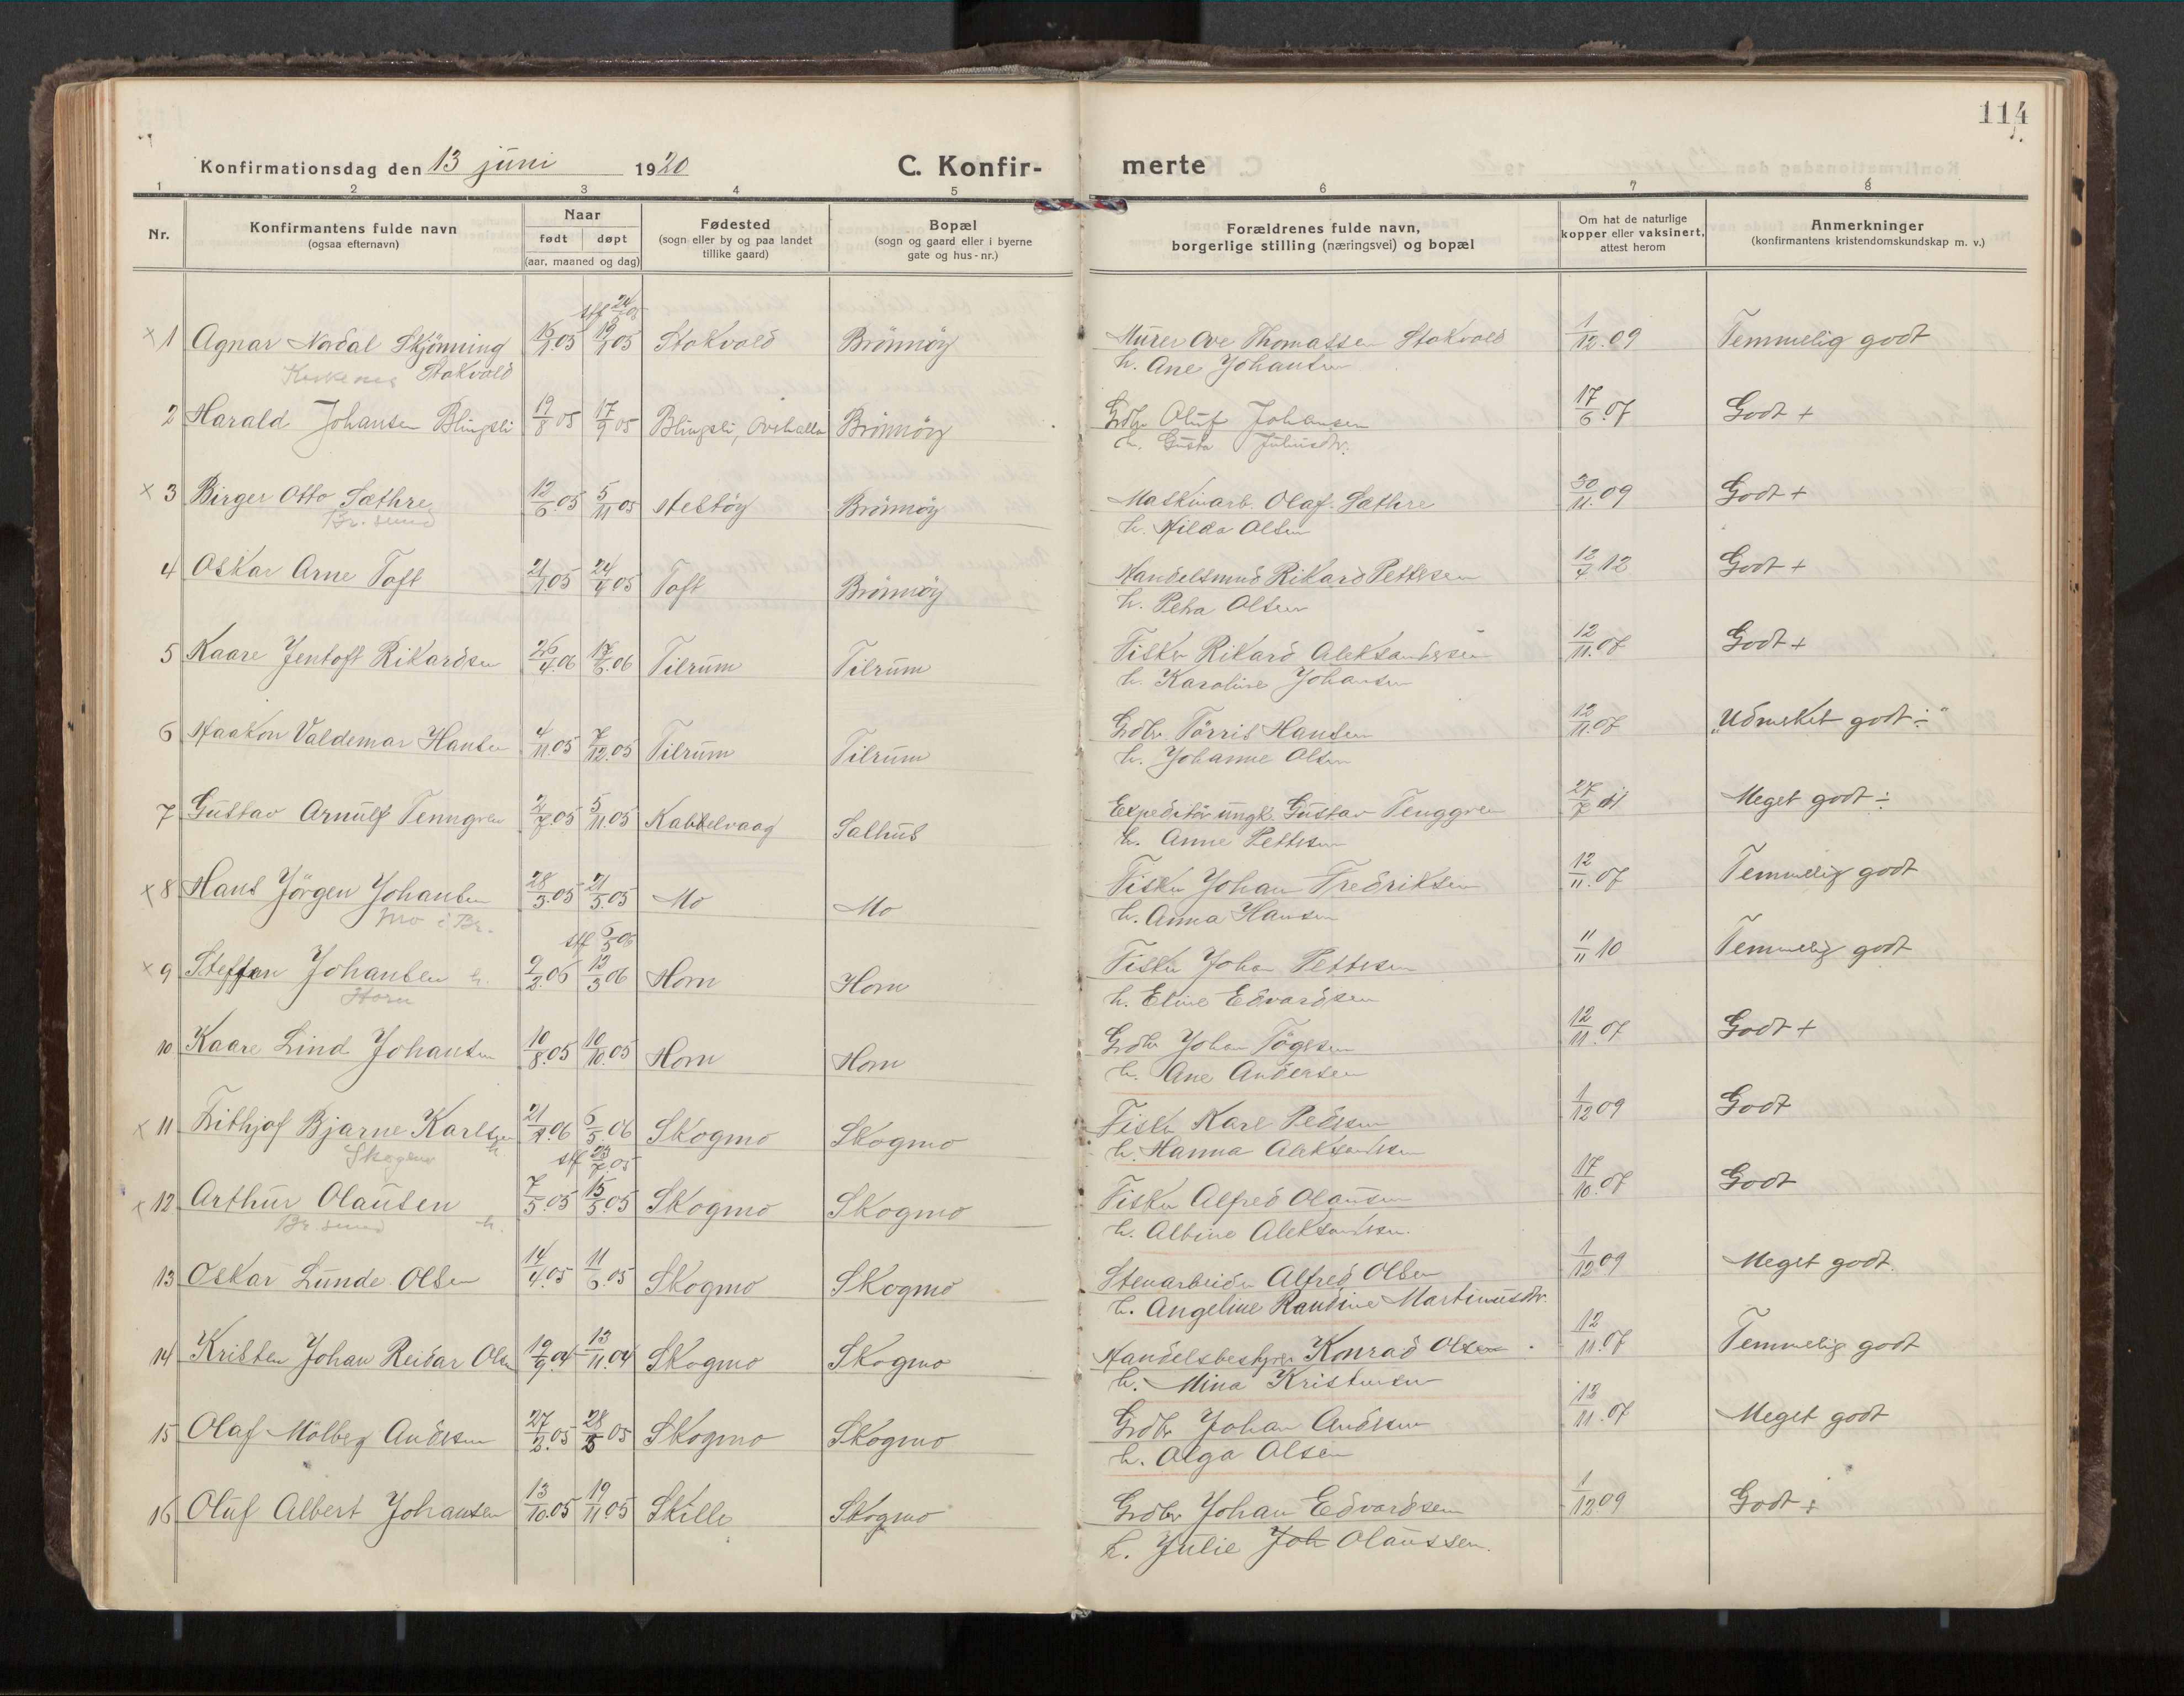 114
Konfirmationsdag den 13 juni 1920
C. Konfir-
merte
1 2 3 4 5 6 7 8
Nr.
Konfirmantens fulde navn
(ogsaa efternavn)
Naar
født døpt
(aar, maaned og dag)
Fødested
(sogn eller by og paa landet
tillike gaard)
Bopæl
(sogn og gaard eller i byerne
gate og hus-nr.)
Forældrenes fulde navn,
borgerlige stilling (næringsvei) og bopæl
Om hat de naturlige
kopper eller vaksinert,
attest herom
Anmerkninger
(konfirmantens kristendomskundskap m. v.)
x 1 Agnar Nordal Skjönning Stokvold Brönnöy Murer Ove Thomassen Stokvold 1/12.09 Temmelig godt
Stokvold h. Ane Johansen
2 Harald Johansen Blingsli 19/8 05 17/9 05 Blingsli, Overhalla Brönnöy Grdbr Oluf Johansen 17/6.07 Godt +
h. Gusta Juliusdtr.
x 3 Birger Otto Sæthre 12/6.05 5/11 05 Brönnöy Maskinarb. Olaf Sæthre 30/11.09 Godt +
Br. sund h. Hilda Olsen
4 Oskar Arne Toft Toft Brönnöy Handelsmnd Rikard Pettersen 12/4 12 Godt +
h. Petra Olsen
5 Kaare Jentoft Rikardsen 26/4.06 17/6.06 Tilrum Tilrum Fisker Rikard Aleksandersen 12/11.07 Godt +
h. Karoline Johansen
6 Haakon Valdemar Hansen 4/11.05 7/12.05 Tilrum Tilrum Grdbr. Törris Hansen 12/11.07 "Udmerket godt ÷"
h. Johanne Olsen
7 Gustav Arnulf Tenngren 2/7.05 5/11.05 Kabbelvaag Salhus Expeditör ungk. Gustav Tenggren 27/7 Meget godt ÷
h. Anne Pettersen
x 8 Hans Jörgen Johansen 28/3.05 21/5.05 Mo Mo Fisker Johan Fredriksen 12/11.07 Temmelig godt
Mo i Br. h. Anna Hansen
stf 5/3 06
x 9 Steffen Johansen h. 9/2.06 12/3 06 Horn Horn Fisker Johan Pettersen 11/11 10 Temmelig godt
Horn h. Eline Edvardsen
10 Kaare Lind Johansen 10/8.05 10/10.05 Horn Horn Grdbr Johan Tögersen 12/11.07 Godt +
h. Ane Andersen
x 11 Frithjof Bjarne Karlsen 6/5.06 Skogmo Skogmo Fisker Karl Pedersen 1/12 09 Godt
Skogmo h. h. Hanna Aleksandersen
stf 23/7.05
x 12 Arthur Olausen 7/5.05 15/5.05 Skogmo Skogmo Fisker Alfred Olausen 17/10.07 Godt
Br. sund h. h. Albine Aleksandersen.
13 Oskar Lunde Olsen 14/4.05 11/6.05 Skogmo Skogmo Stenarbeider Alfred Olsen 1/12 09 Meget godt.
h. Angeline Randine Martinusdtr.
14 Kristen Johan Reidar Olsen 19/9.04 13/11.04 Skogmo Skogmo Handelsbestyrer Konrad Olsen 12/11.07 Temmelig godt
h. Mina Kristensen
15 Olaf Mölberg Andersen 27/2.05 28/5 05 Skogmo Skogmo Grdbr Johan Andersen 12/11.07 Meget godt
h. Olga Olsen
16 Oluf Albert Johansen 13/10.05 19/11 05 Skille Skogmo Grdbr Johan Edvardsen 1/12.09 Godt ÷
h. Julie Joh Olaussen.